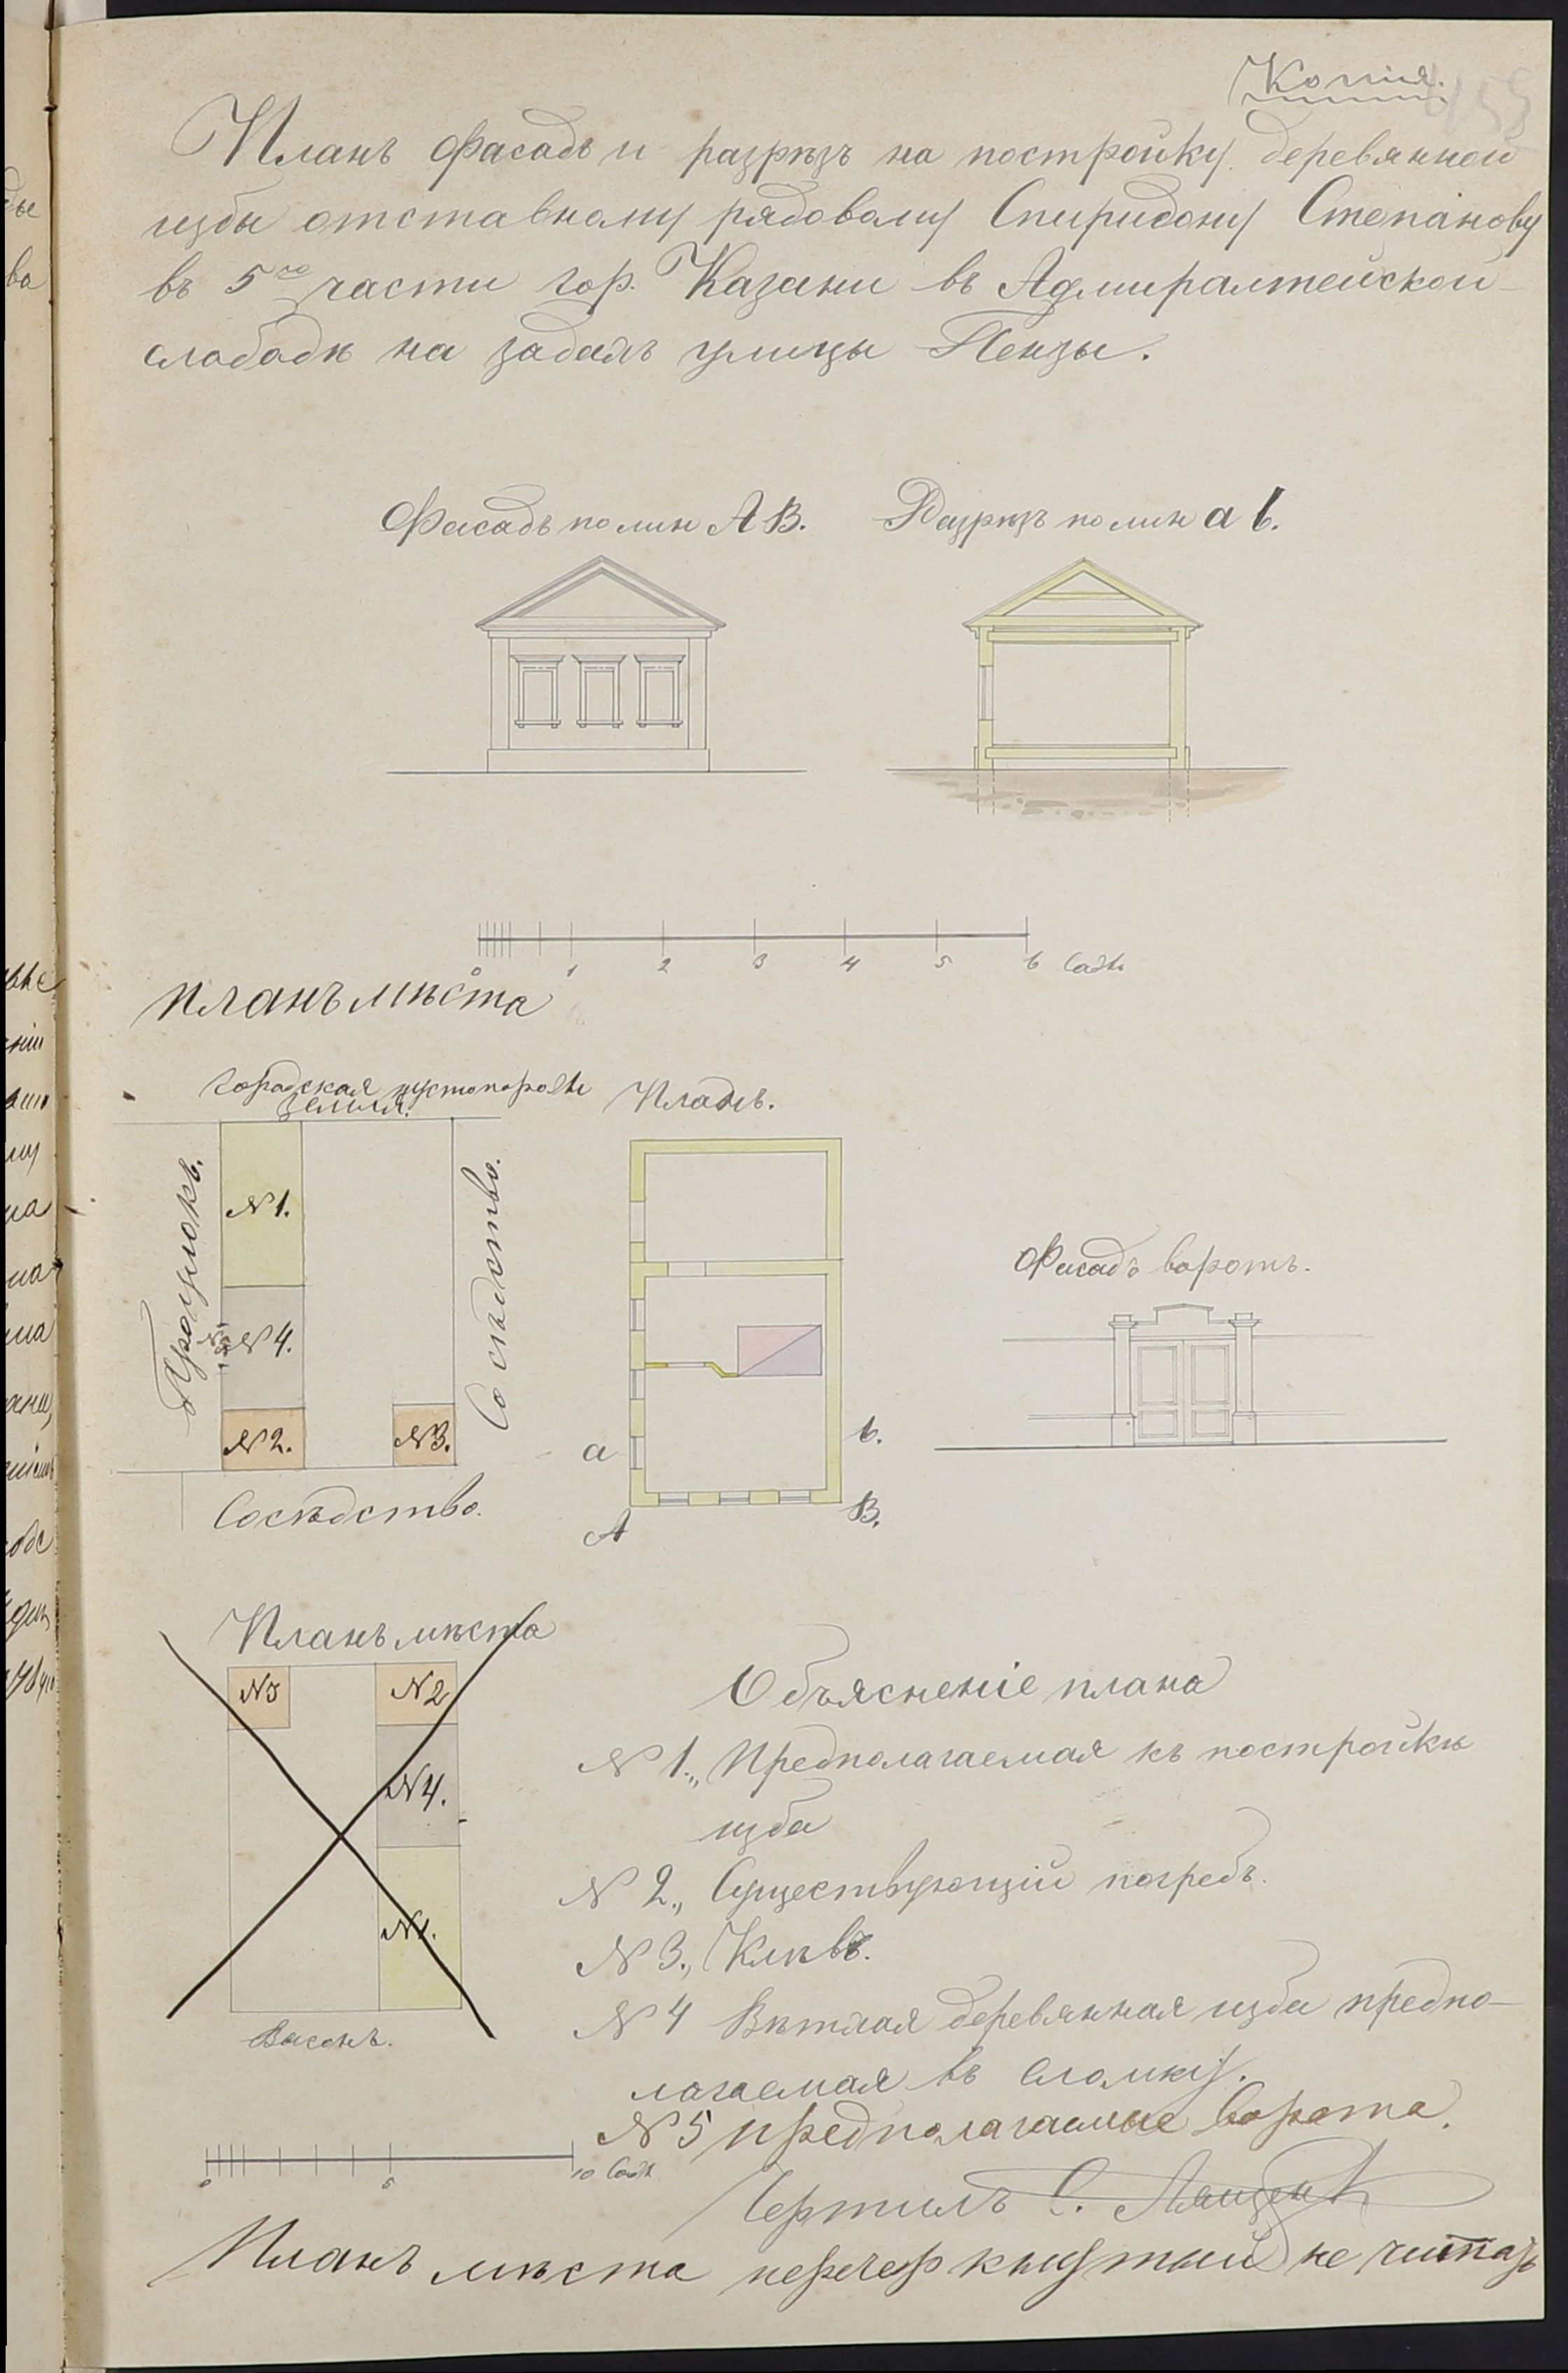 Копія.
Планъ фасадъ и разрѣзъ на постройку деревянной
избы отставному рядовому Спиридону Степанову
въ 5ой части гор. Казани въ Адмиралтейской
слободѣ на задахъ улицы Пензы.
Фасадъ по лин АВ.
Разрѣзъ по лин а b.
0 1 2 3 4 5 6 Саж
Планъ мѣста
Городская пустопорозж
земля.
Проулокъ.
N 1.
N 4.
N 2.
N 3.
Сосѣдство.
Сосѣдство.
Планъ.
а
b.
А
В.
Фасадъ воротъ.
Планъ мѣста
N 3
N 2
N 4.
N 1.
Объясненіе плана
N 1., Предполагаемая къ постройкѣ
изба
N 2., Существующій погребъ.
N 3., Хлѣвъ.
N 4 Ветхая деревянная изба предпо-
лагаемая въ сломку.
N 5 предполагаемые ворота.
0 5 10 Саж
Чертилъ С.
Планъ мѣста перечеркнутый не читать